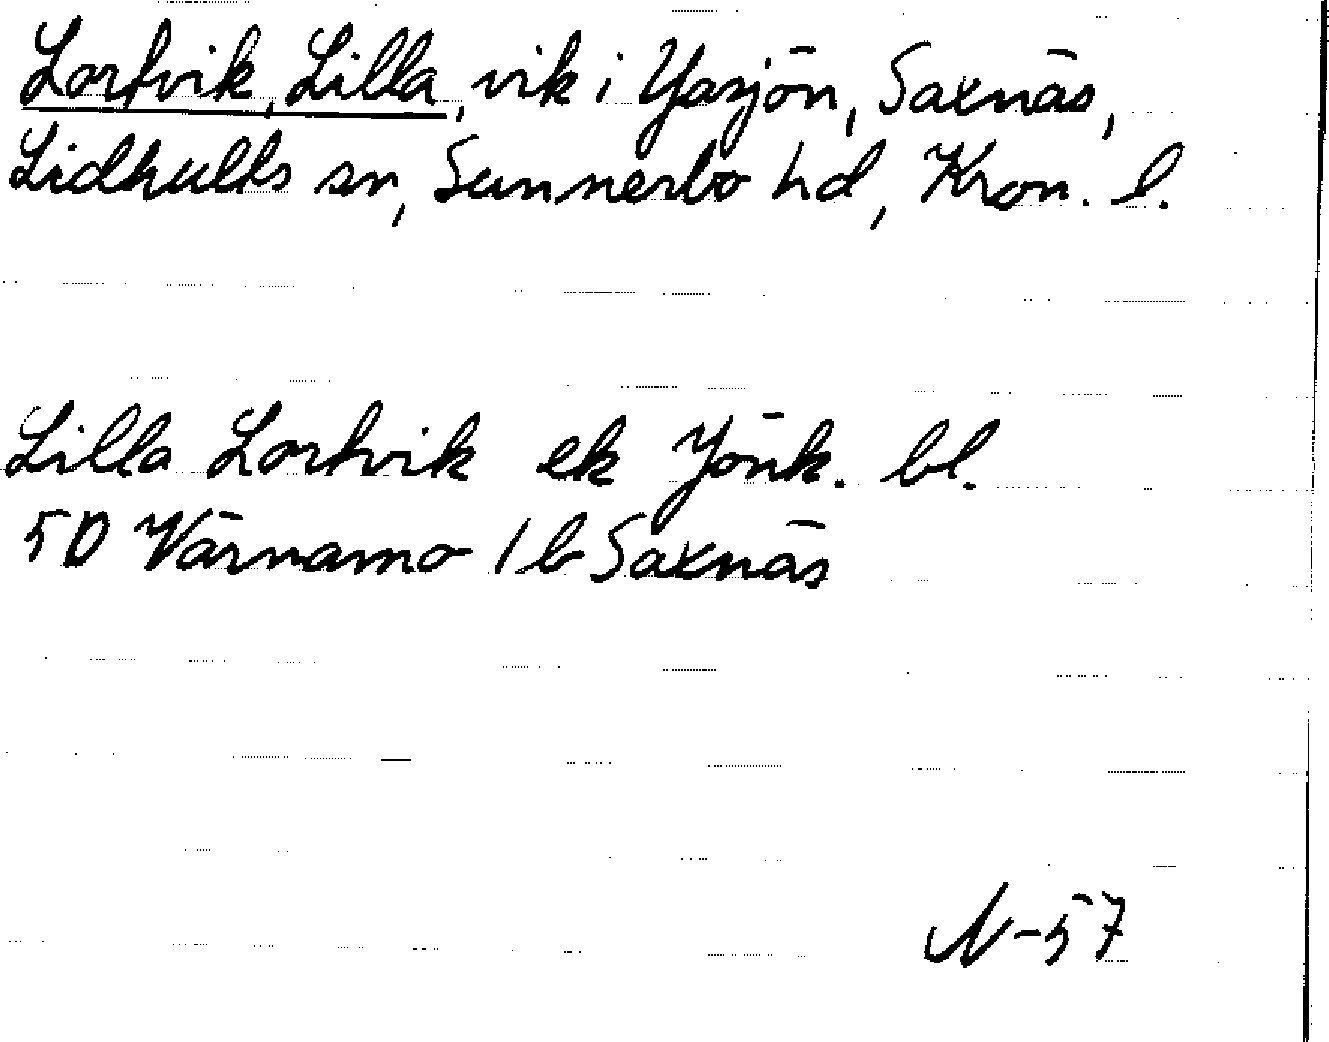 Lortvik, Lilla, vik i Yasjön, Saxnäs,
Lidhults sn, Sunnerbo hd, Kron. l.
Lilla Lortvik ek Jönk. bl.
5D Värnamo 1b Saxnäs
N-57